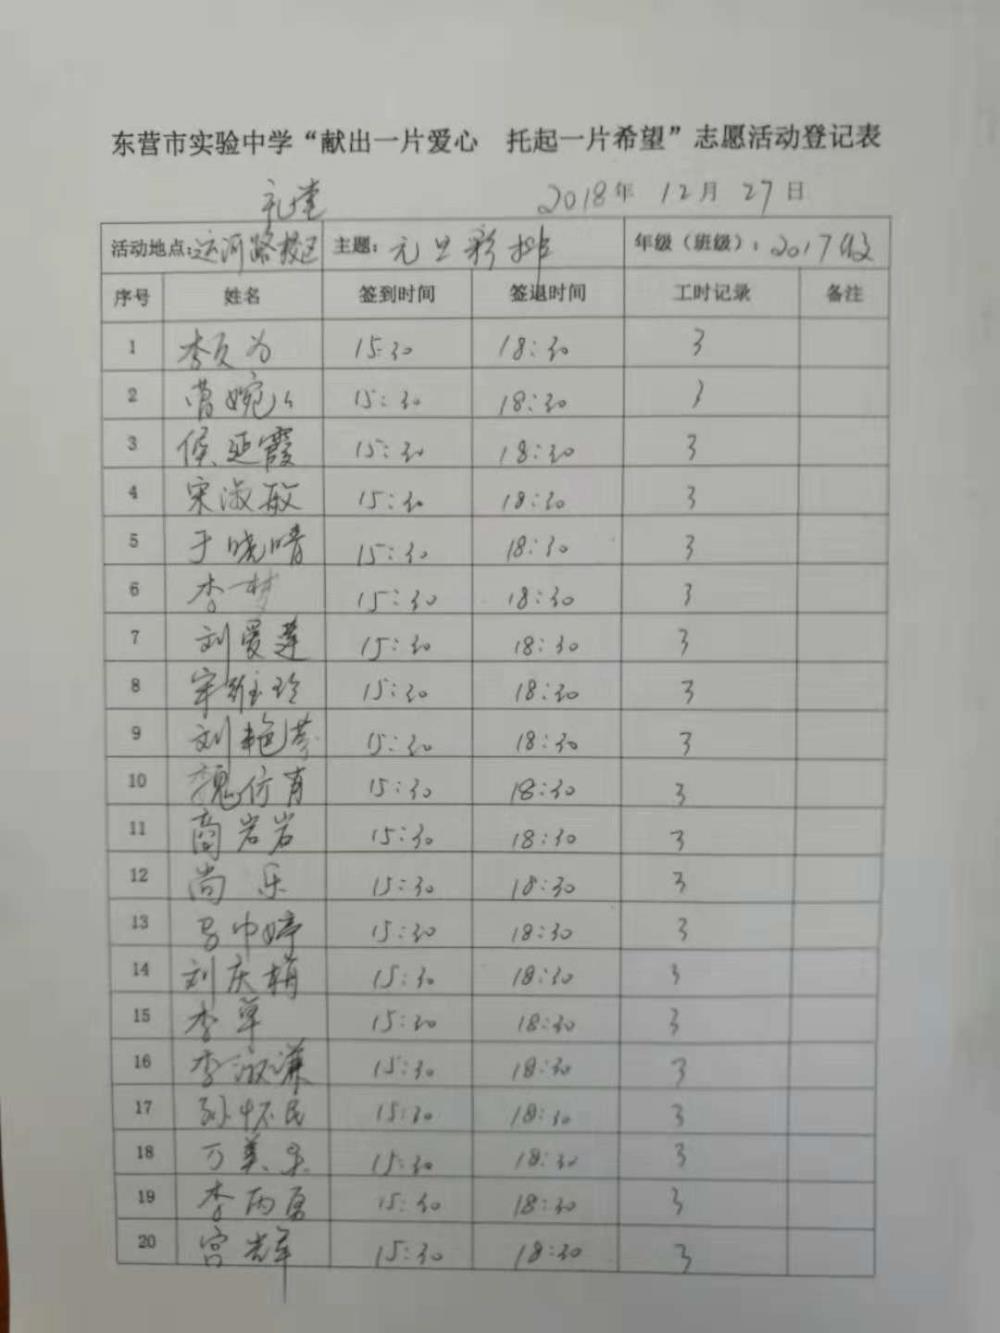 东营市实验中学“献出一片爱心 托起一片希望”志愿活动登记表
礼堂 2018年 12月 27日
活动地点:运河路校区 主题:元旦彩排 年级(班级):2017级
序号 姓名 签到时间 签退时间 工时记录 备注
1 李友为 15:30 18:30 3
2 曹婉 15:30 18:30 3
3 侯延霞 15:30 18:30 3
4 宋淑敏 15:30 18:30 3
5 于晓晴 15:30 18:30 3
6 李一梦 15:30 18:30 3
7 刘爱莲 15:30 18:30 3
8 宋维玲 15:30 18:30 3
9 刘艳芬 15:30 18:30 3
10 魏仿青 15:30 18:30 3
11 商岩岩 15:30 18:30 3
12 尚乐 15:30 18:30 3
13 马中婷 15:30 18:30 3
14 刘庆梅 15:30 18:30 3
15 李军 15:30 18:30 3
16 李淑谦 15:30 18:30 3
17 孙怀民 15:30 18:30 3
18 万美乐 15:30 18:30 3
19 李丙勇 15:30 18:30 3
20 宫光军 15:30 18:30 3